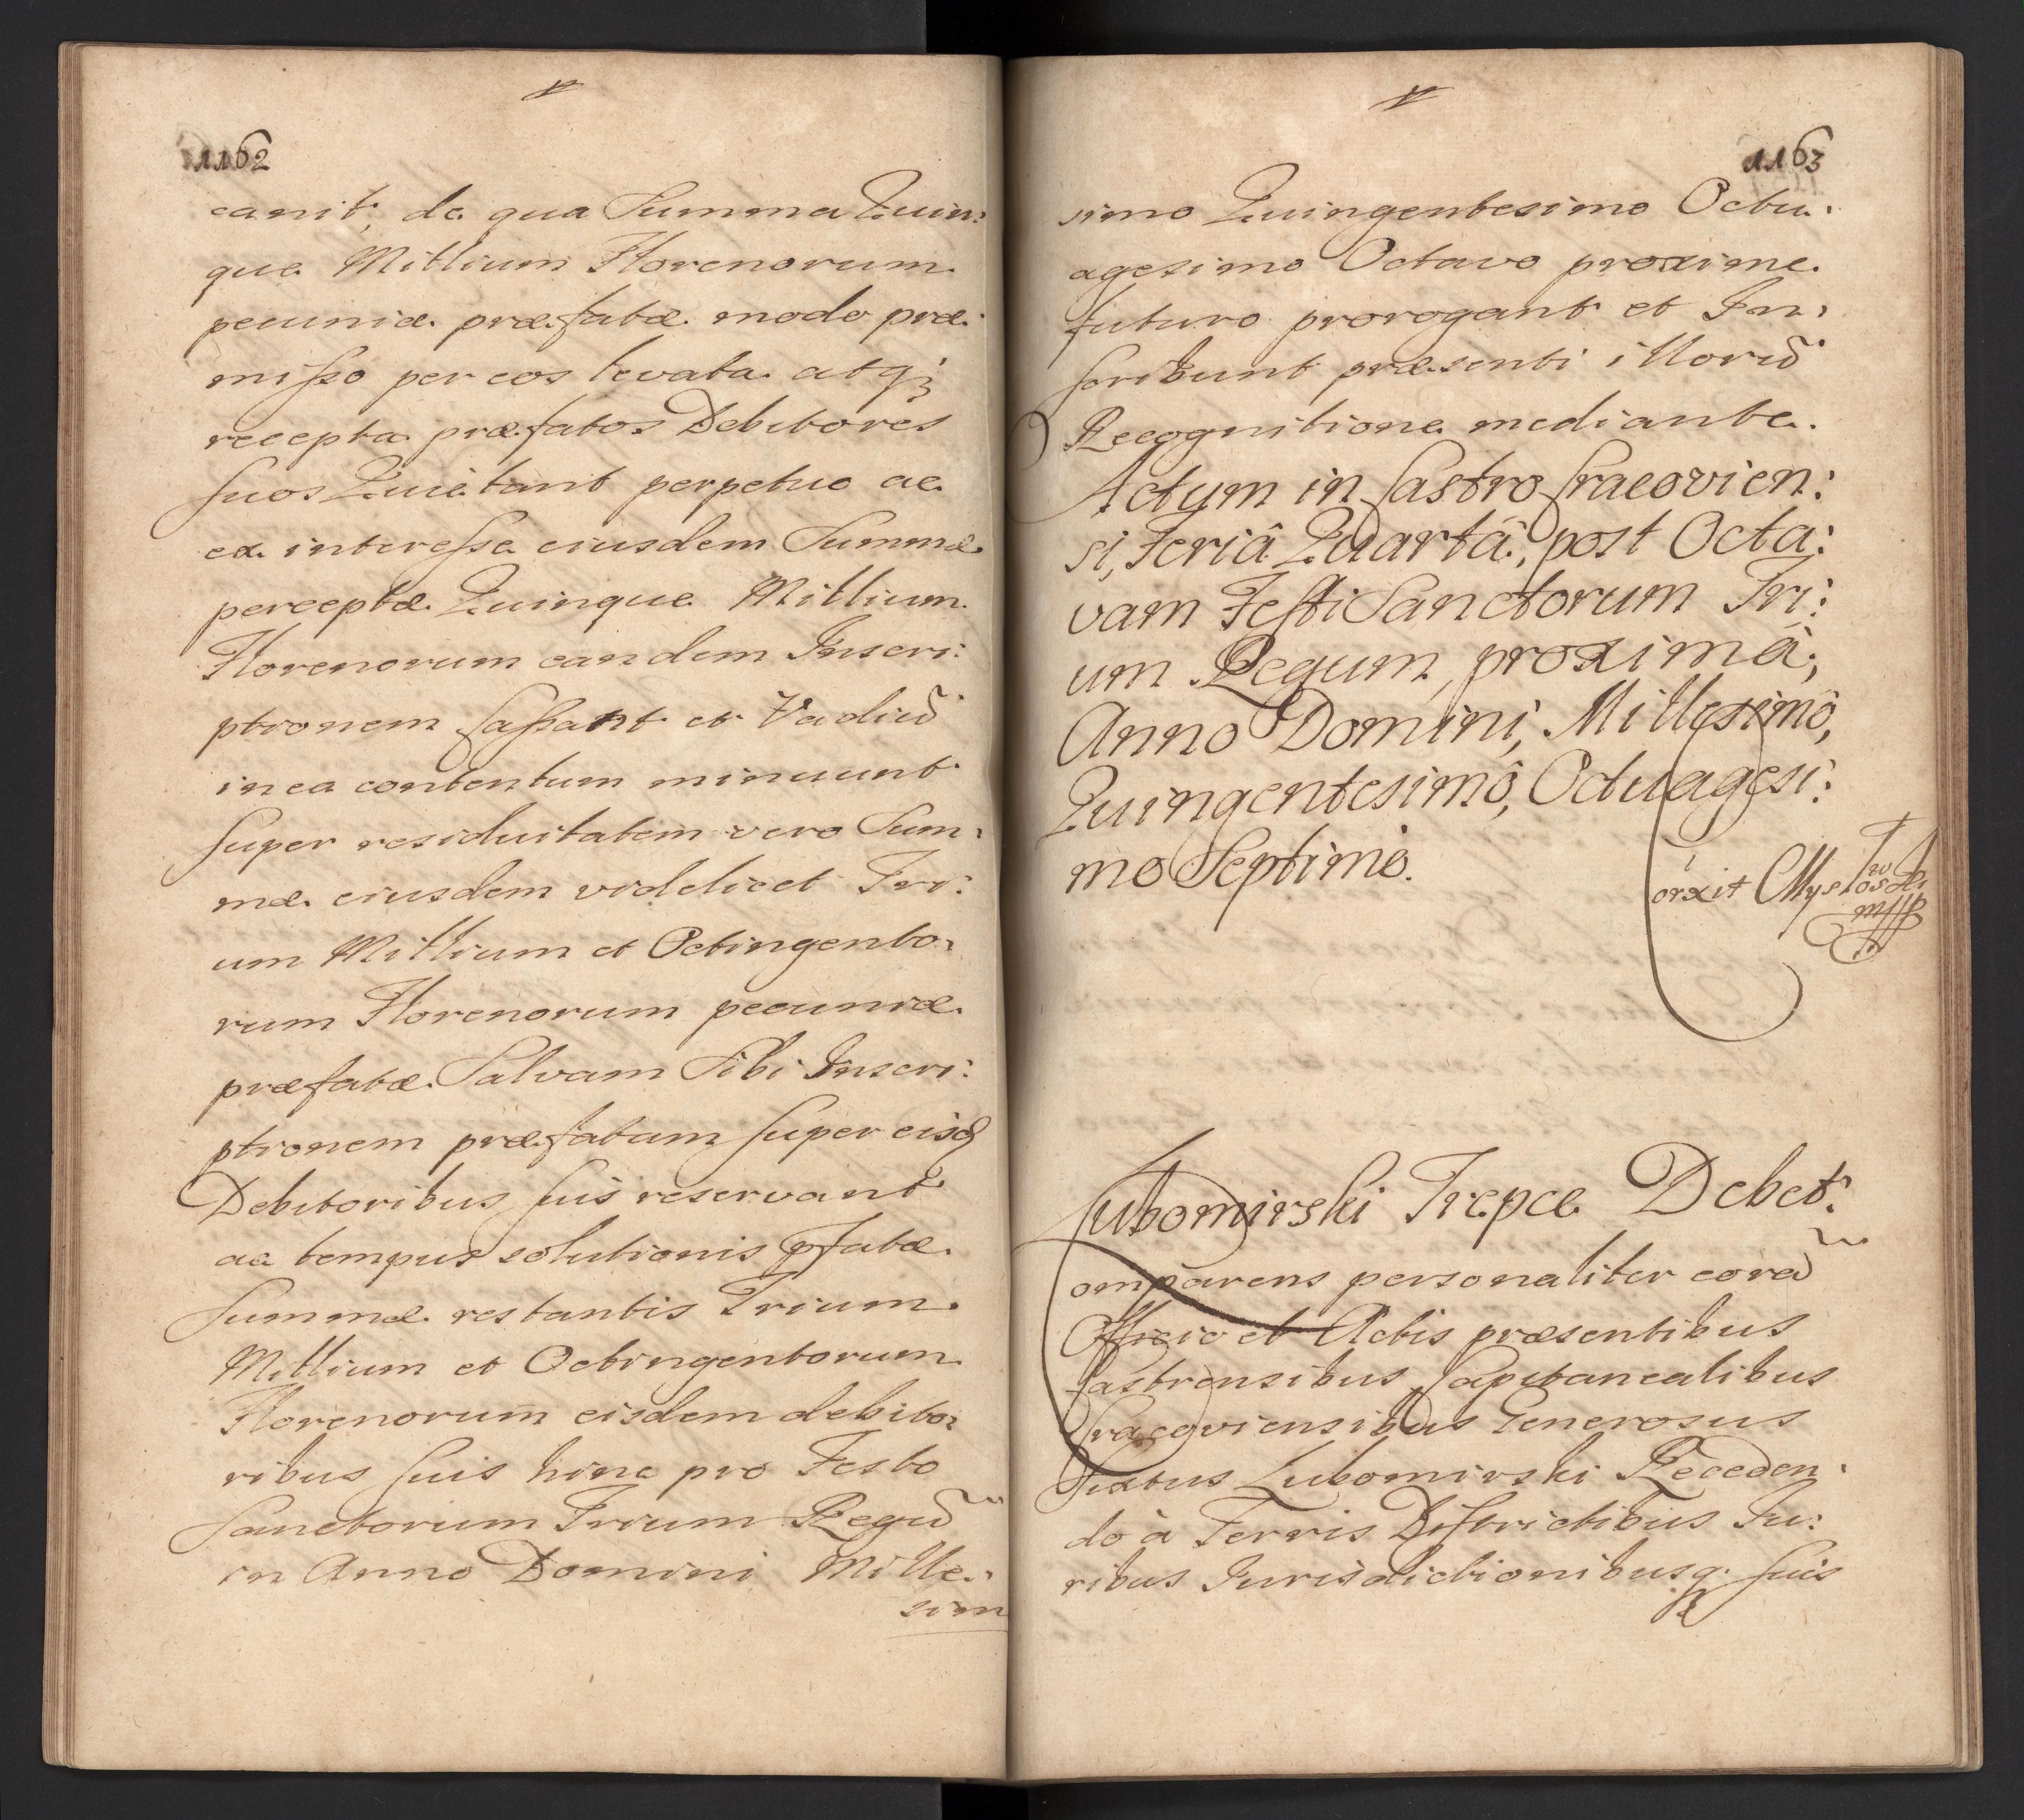 1162
canit, de qua Summa Quin:
que Millium Florenorum
pecuniæ præfatæ modo præ:
misso per eos levata atq;
recepta præfatos Debitores
suos Quietant perpetuo ac
ex interesse eiusdem Summæ
perceptæ Quinque Millium
Florenorum eandem Inscri:
ptionem cassant et Vadiū
in ea contentum minuunt
Super residuitatem vero Sum:
mæ eiusdem videlicet Tri:
um Millium et Octingento:
rum Florenorum pecuniæ
præfatæ Salvam Sibi Inscri:
ptionem præfatam super eisd
Debitoribus suis reservant
ac tempus solutionis pfatæ
Summæ restantis Trium
Millium et Octingentorum
Florenorum eisdem debito:
ribus suis hinc pro Festo
Sanctorum Trium Regū
in Anno Domini Mille:
sim
1163
simo Quingentesimo Octu:
agesimo Octavo proxime
futuro prorogant et In:
scribunt præsenti illorū
Recognitione mediante.
Actum in Castro Cracovien:
si, Feriâ Quartâ, post Octa:
vam Festi Sanctorum Tri:
um Regum, proximâ,
Anno Domini, Millesimô,
Quingentesimô, Octuagesi:
mo Septimô.
orxit Mysłowski
Lubomirski Trepce Debet:
omparens personaliter corā
Officio et Actis præsentibus
Castrensibus Capitanealibus
Cracoviensibus Generosus
Sixtus Lubomirski Receden:
do à Terris Districtibus Ju:
ribus Jurisdictionibusq. suis